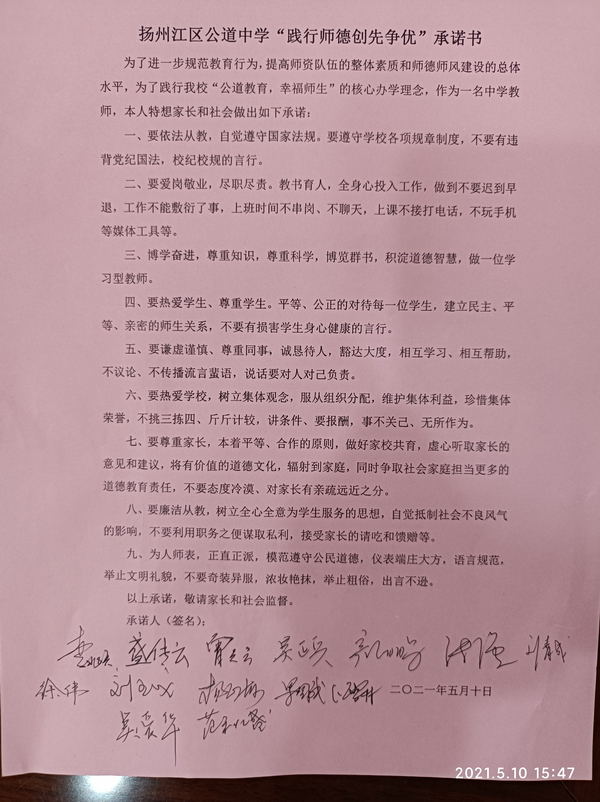 扬州江区公道中学“践行师德创先争优”承诺书
为了进一步规范教育行为，提高师资队伍的整体素质和师德师风建设的总体
水平，为了践行我校“公道教育，幸福师生”的核心办学理念，作为一名中学教
师，本人特想家长和社会做出如下承诺：
一、要依法从教，自觉遵守国家法规。要遵守学校各项规章制度，不要有违
背党纪国法，校纪校规的言行。
二、要爱岗敬业，尽职尽责。教书育人，全身心投入工作，做到不要迟到早
退，工作不能敷衍了事，上班时间不串岗、不聊天，上课不接打电话，不玩手机
等媒体工具等。
三、博学奋进，尊重知识，尊重科学，博览群书，积淀道德智慧，做一位学
习型教师。
四、要热爱学生、尊重学生。平等、公正的对待每一位学生，建立民主、平
等、亲密的师生关系，不要有损害学生身心健康的言行。
五、要谦虚谨慎、尊重同事，诚恳待人，豁达大度，相互学习、相互帮助，
不议论、不传播流言蜚语，说话要对人对己负责。
六、要热爱学校，树立集体观念，服从组织分配，维护集体利益，珍惜集体
荣誉，不挑三拣四、斤斤计较，讲条件、要报酬，事不关己、无所作为。
七、要尊重家长，本着平等、合作的原则，做好家校共育，虚心听取家长的
意见和建议，将有价值的道德文化，辐射到家庭，同时争取社会家庭担当更多的
道德教育责任，不要态度冷漠、对家长有亲疏远近之分。
八、要廉洁从教，树立全心全意为学生服务的思想，自觉抵制社会不良风气
的影响，不要利用职务之便谋取私利，接受家长的请吃和馈赠等。
九、为人师表，正直正派，模范遵守公民道德，仪表端庄大方，语言规范，
举止文明礼貌，不要奇装异服，浓妆艳抹，举止粗俗，出言不逊。
以上承诺，敬请家长和社会监督。
承诺人（签名）：
盛传云
徐伟 二〇二一年五月十日
吴爱华
2021.5.10 15:47